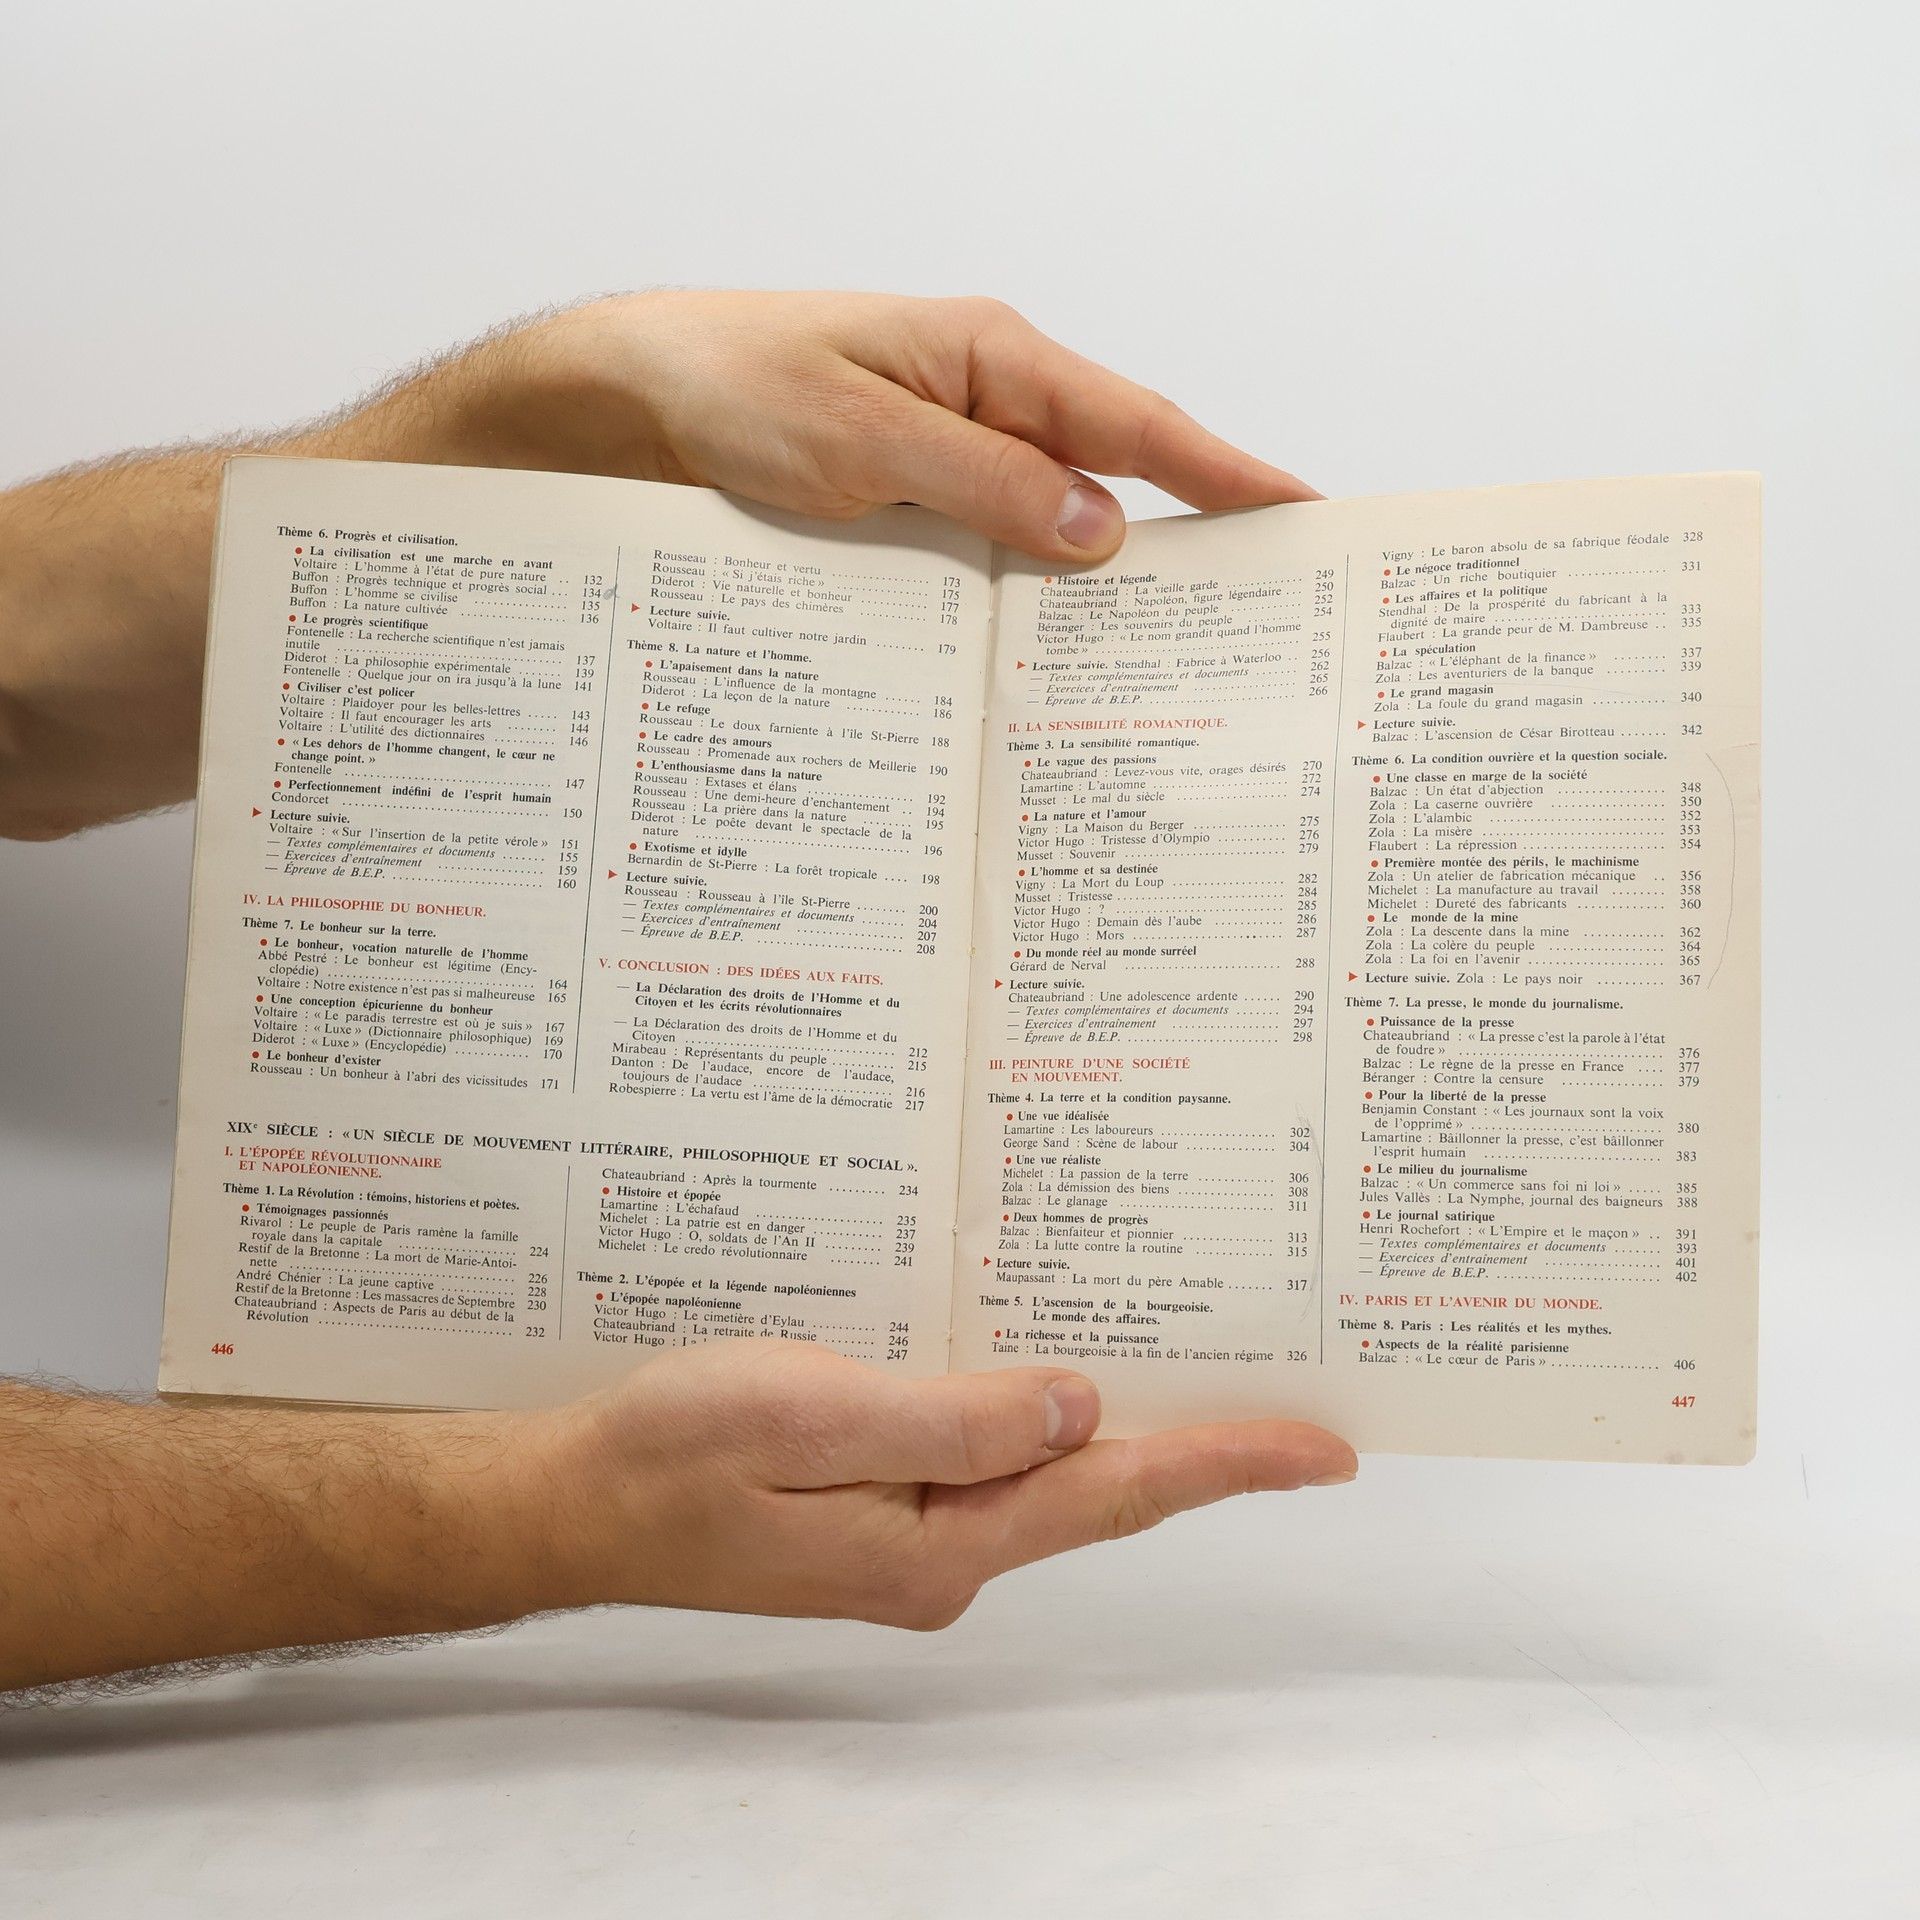 Thème 6. Progrès et civilisation.
● La civilisation est une marche en avant
Voltaire : L'homme à l'état de pure nature .. 132
Buffon : Progrès technique et progrès social ... 134
Buffon : L'homme se civilise ............ 135
Buffon : La nature cultivée ............ 136
● Le progrès scientifique
Fontenelle : La recherche scientifique n'est jamais
inutile ............ 137
Diderot : La philosophie expérimentale ....... 139
Fontenelle : Quelque jour on ira jusqu'à la lune 141
● Civiliser c'est policer
Voltaire : Plaidoyer pour les belles-lettres ..... 143
Voltaire : Il faut encourager les arts ........ 144
Voltaire : L'utilité des dictionnaires .......... 146
● « Les dehors de l'homme changent, le cœur ne
change point. »
Fontenelle ............ 147
● Perfectionnement indéfini de l'esprit humain
Condorcet ............ 150
▶ Lecture suivie.
Voltaire : « Sur l'insertion de la petite vérole » 151
— Textes complémentaires et documents ....... 155
— Exercices d'entraînement ............ 159
— Épreuve de B.E.P. ............ 160
IV. LA PHILOSOPHIE DU BONHEUR.
Thème 7. Le bonheur sur la terre.
● Le bonheur, vocation naturelle de l'homme
Abbé Pestré : Le bonheur est légitime (Ency-
clopédie) ............ 164
Voltaire : Notre existence n'est pas si malheureuse 165
● Une conception épicurienne du bonheur
Voltaire : « Le paradis terrestre est où je suis » 167
Voltaire : « Luxe » (Dictionnaire philosophique) 169
Diderot : « Luxe » (Encyclopédie) ........... 170
● Le bonheur d'exister
Rousseau : Un bonheur à l'abri des vicissitudes 171
Rousseau : Bonheur et vertu ............ 173
Rousseau : « Si j'étais riche » ............ 175
Diderot : Vie naturelle et bonheur ............ 177
Rousseau : Le pays des chimères ............ 178
▶ Lecture suivie.
Voltaire : Il faut cultiver notre jardin ........ 179
Thème 8. La nature et l'homme.
● L'apaisement dans la nature
Rousseau : L'influence de la montagne ...... 184
Diderot : La leçon de la nature ........... 186
● Le refuge
Rousseau : Le doux farniente à l'île St-Pierre 188
● Le cadre des amours
Rousseau : Promenade aux rochers de Meillerie 190
● L'enthousiasme dans la nature
Rousseau : Extases et élans ............ 192
Rousseau : Une demi-heure d'enchantement .. 194
Rousseau : La prière dans la nature ........ 195
Diderot : Le poète devant le spectacle de la
nature ............ 196
● Exotisme et idylle
Bernardin de St-Pierre : La forêt tropicale .... 198
▶ Lecture suivie.
Rousseau : Rousseau à l'île St-Pierre ........ 200
— Textes complémentaires et documents ....... 204
— Exercices d'entraînement ............ 207
— Épreuve de B.E.P. ............ 208
V. CONCLUSION : DES IDÉES AUX FAITS.
— La Déclaration des droits de l'Homme et du
Citoyen et les écrits révolutionnaires
— La Déclaration des droits de l'Homme et du
Citoyen ............ 212
Mirabeau : Représentants du peuple .......... 215
Danton : De l'audace, encore de l'audace,
toujours de l'audace ............ 216
Robespierre : La vertu est l'âme de la démocratie 217
XIXe SIÈCLE : « UN SIÈCLE DE MOUVEMENT LITTÉRAIRE, PHILOSOPHIQUE ET SOCIAL ».
I. L'ÉPOPÉE RÉVOLUTIONNAIRE
ET NAPOLÉONIENNE.
Thème 1. La Révolution : témoins, historiens et poètes.
● Témoignages passionnés
Rivarol : Le peuple de Paris ramène la famille
royale dans la capitale ............ 224
Restif de la Bretonne : La mort de Marie-Antoi-
nette ............ 226
André Chénier : La jeune captive ............ 228
Restif de la Bretonne : Les massacres de Septembre 230
Chateaubriand : Aspects de Paris au début de la
Révolution ............ 232
Chateaubriand : Après la tourmente ......... 234
● Histoire et épopée
Lamartine : L'échafaud ............ 235
Michelet : La patrie est en danger ............ 237
Victor Hugo : O, soldats de l'An II ......... 239
Michelet : Le credo révolutionnaire ........ 241
Thème 2. L'épopée et la légende napoléoniennes
● L'épopée napoléonienne
Victor Hugo : Le cimetière d'Eylau ............ 244
Chateaubriand : La retraite de Russie ........ 246
Victor Hugo : ..... 247
446
● Histoire et légende
Chateaubriand : La vieille garde ............ 249
Chateaubriand : Napoléon, figure légendaire ... 250
Balzac : Le Napoléon du peuple ............ 252
Béranger : Les souvenirs du peuple ............ 254
Victor Hugo : « Le nom grandit quand l'homme
tombe » ............ 255
▶ Lecture suivie. Stendhal : Fabrice à Waterloo .. 256
— Textes complémentaires et documents ....... 262
— Exercices d'entraînement ............ 265
— Épreuve de B.E.P. ............ 266
II. LA SENSIBILITÉ ROMANTIQUE.
Thème 3. La sensibilité romantique.
● Le vague des passions
Chateaubriand : Levez-vous vite, orages désirés 270
Lamartine : L'automne ............ 272
Musset : Le mal du siècle ............ 274
● La nature et l'amour
Vigny : La Maison du Berger ............ 275
Victor Hugo : Tristesse d'Olympio ........... 276
Musset : Souvenir ............ 279
● L'homme et sa destinée
Vigny : La Mort du Loup ............ 282
Musset : Tristesse ............ 284
Victor Hugo : ? ............ 285
Victor Hugo : Demain dès l'aube ............ 286
Victor Hugo : Mors ............ 287
● Du monde réel au monde surréel
Gérard de Nerval ............ 288
▶ Lecture suivie.
Chateaubriand : Une adolescence ardente ...... 290
— Textes complémentaires et documents ....... 294
— Exercices d'entraînement ............ 297
— Épreuve de B.E.P. ............ 298
III. PEINTURE D'UNE SOCIÉTÉ
EN MOUVEMENT.
Thème 4. La terre et la condition paysanne.
● Une vue idéalisée
Lamartine : Les laboureurs ............ 302
George Sand : Scène de labour ............ 304
● Une vue réaliste
Michelet : La passion de la terre ............ 306
Zola : La démission des biens ............ 308
Balzac : Le glanage ............ 311
● Deux hommes de progrès
Balzac : Bienfaiteur et pionnier ............ 313
Zola : La lutte contre la routine ............ 315
▶ Lecture suivie.
Maupassant : La mort du père Amable ....... 317
Thème 5. L'ascension de la bourgeoisie.
Le monde des affaires.
● La richesse et la puissance
Taine : La bourgeoisie à la fin de l'ancien régime 326
Vigny : Le baron absolu de sa fabrique féodale 328
● Le négoce traditionnel
Balzac : Un riche boutiquier ............ 331
● Les affaires et la politique
Stendhal : De la prospérité du fabricant à la
dignité de maire ............ 333
Flaubert : La grande peur de M. Dambreuse .. 335
● La spéculation
Balzac : « L'éléphant de la finance » ........ 337
Zola : Les aventuriers de la banque ......... 339
● Le grand magasin
Zola : La foule du grand magasin .......... 340
▶ Lecture suivie.
Balzac : L'ascension de César Birotteau ....... 342
Thème 6. La condition ouvrière et la question sociale.
● Une classe en marge de la société
Balzac : Un état d'abjection ............ 348
Zola : La caserne ouvrière ............ 350
Zola : L'alambic ............ 352
Zola : La misère ............ 353
Flaubert : La répression ............ 354
● Première montée des périls, le machinisme
Zola : Un atelier de fabrication mécanique .. 356
Michelet : La manufacture au travail ........ 358
Michelet : Dureté des fabricants ............ 360
● Le monde de la mine
Zola : La descente dans la mine ............ 362
Zola : La colère du peuple ............ 364
Zola : La foi en l'avenir ............ 365
▶ Lecture suivie. Zola : Le pays noir ........ 367
Thème 7. La presse, le monde du journalisme.
● Puissance de la presse
Chateaubriand : « La presse c'est la parole à l'état
de foudre » ............ 376
Balzac : Le règne de la presse en France .... 377
Béranger : Contre la censure ............ 379
● Pour la liberté de la presse
Benjamin Constant : « Les journaux sont la voix
de l'opprimé » ............ 380
Lamartine : Bâillonner la presse, c'est bâillonner
l'esprit humain ............ 383
● Le milieu du journalisme
Balzac : « Un commerce sans foi ni loi » ..... 385
Jules Vallès : La Nymphe, journal des baigneurs 388
● Le journal satirique
Henri Rochefort : « L'Empire et le maçon » .. 391
— Textes complémentaires et documents ....... 393
— Exercices d'entraînement ............ 401
— Épreuve de B.E.P. ............ 402
IV. PARIS ET L'AVENIR DU MONDE.
Thème 8. Paris : Les réalités et les mythes.
● Aspects de la réalité parisienne
Balzac : « Le cœur de Paris » ............ 406
447